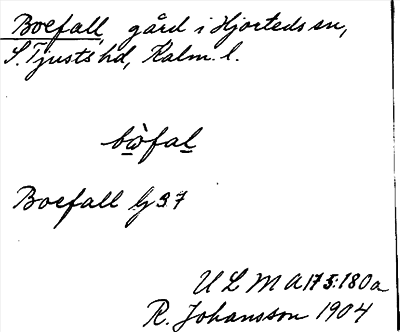 Boefall, gård i Hjorteds sn,
S. Tjusts hd, Kalm. l.
bὼfal
Boefall Gj 37
ULMA 175:180a
R. Johansson 1904